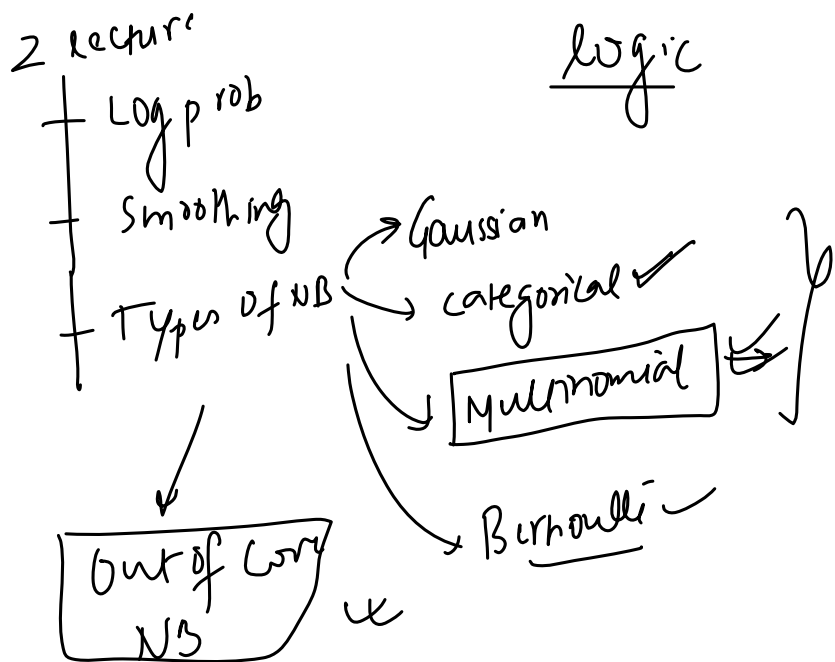 2 lecture
logic
Log prob
Smoothing
Types of NB
Gaussian
categorical
Multinomial
Bernoulli
Out of Core
NB